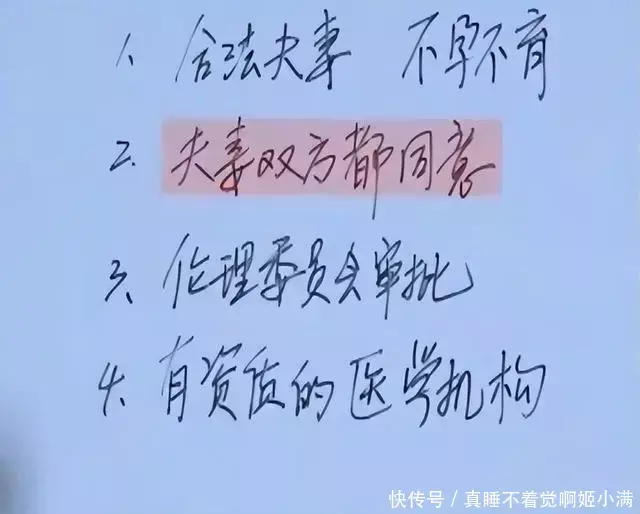 1、合法夫妻 不孕不育
2、夫妻双方都同意
3、伦理委员会审批
4、有资质的医学机构
快传号/真睡不着觉啊姬小满